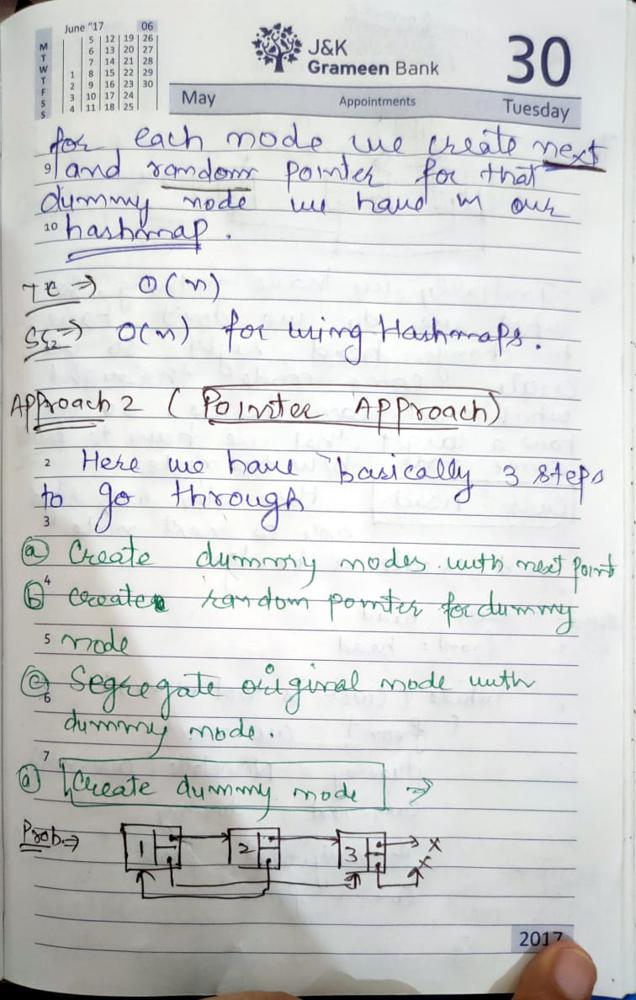 June "17 06
M T W T F S S
5 12 19 26
6 13 20 27
7 14 21 28
1 8 15 22 29
2 9 16 23 30
3 10 17 24
4 11 18 25
J&K
Grameen Bank
30
May Appointments Tuesday
for each node we create next
9 and random pointer for that
dummy node we have in our
10 hashmap.
TC => O(n)
=> O(n) for using Hashmaps.
Approach 2 (Pointer Approach)
2 Here we have basically 3 steps
to go through
3
a) Create dummy nodes with next point
4
b) create random pointer for dummy
5 node
c) Segregate original node with
6
dummy node.
7
a) Create dummy node =>
Prob. => 1 2 3 x x
2017